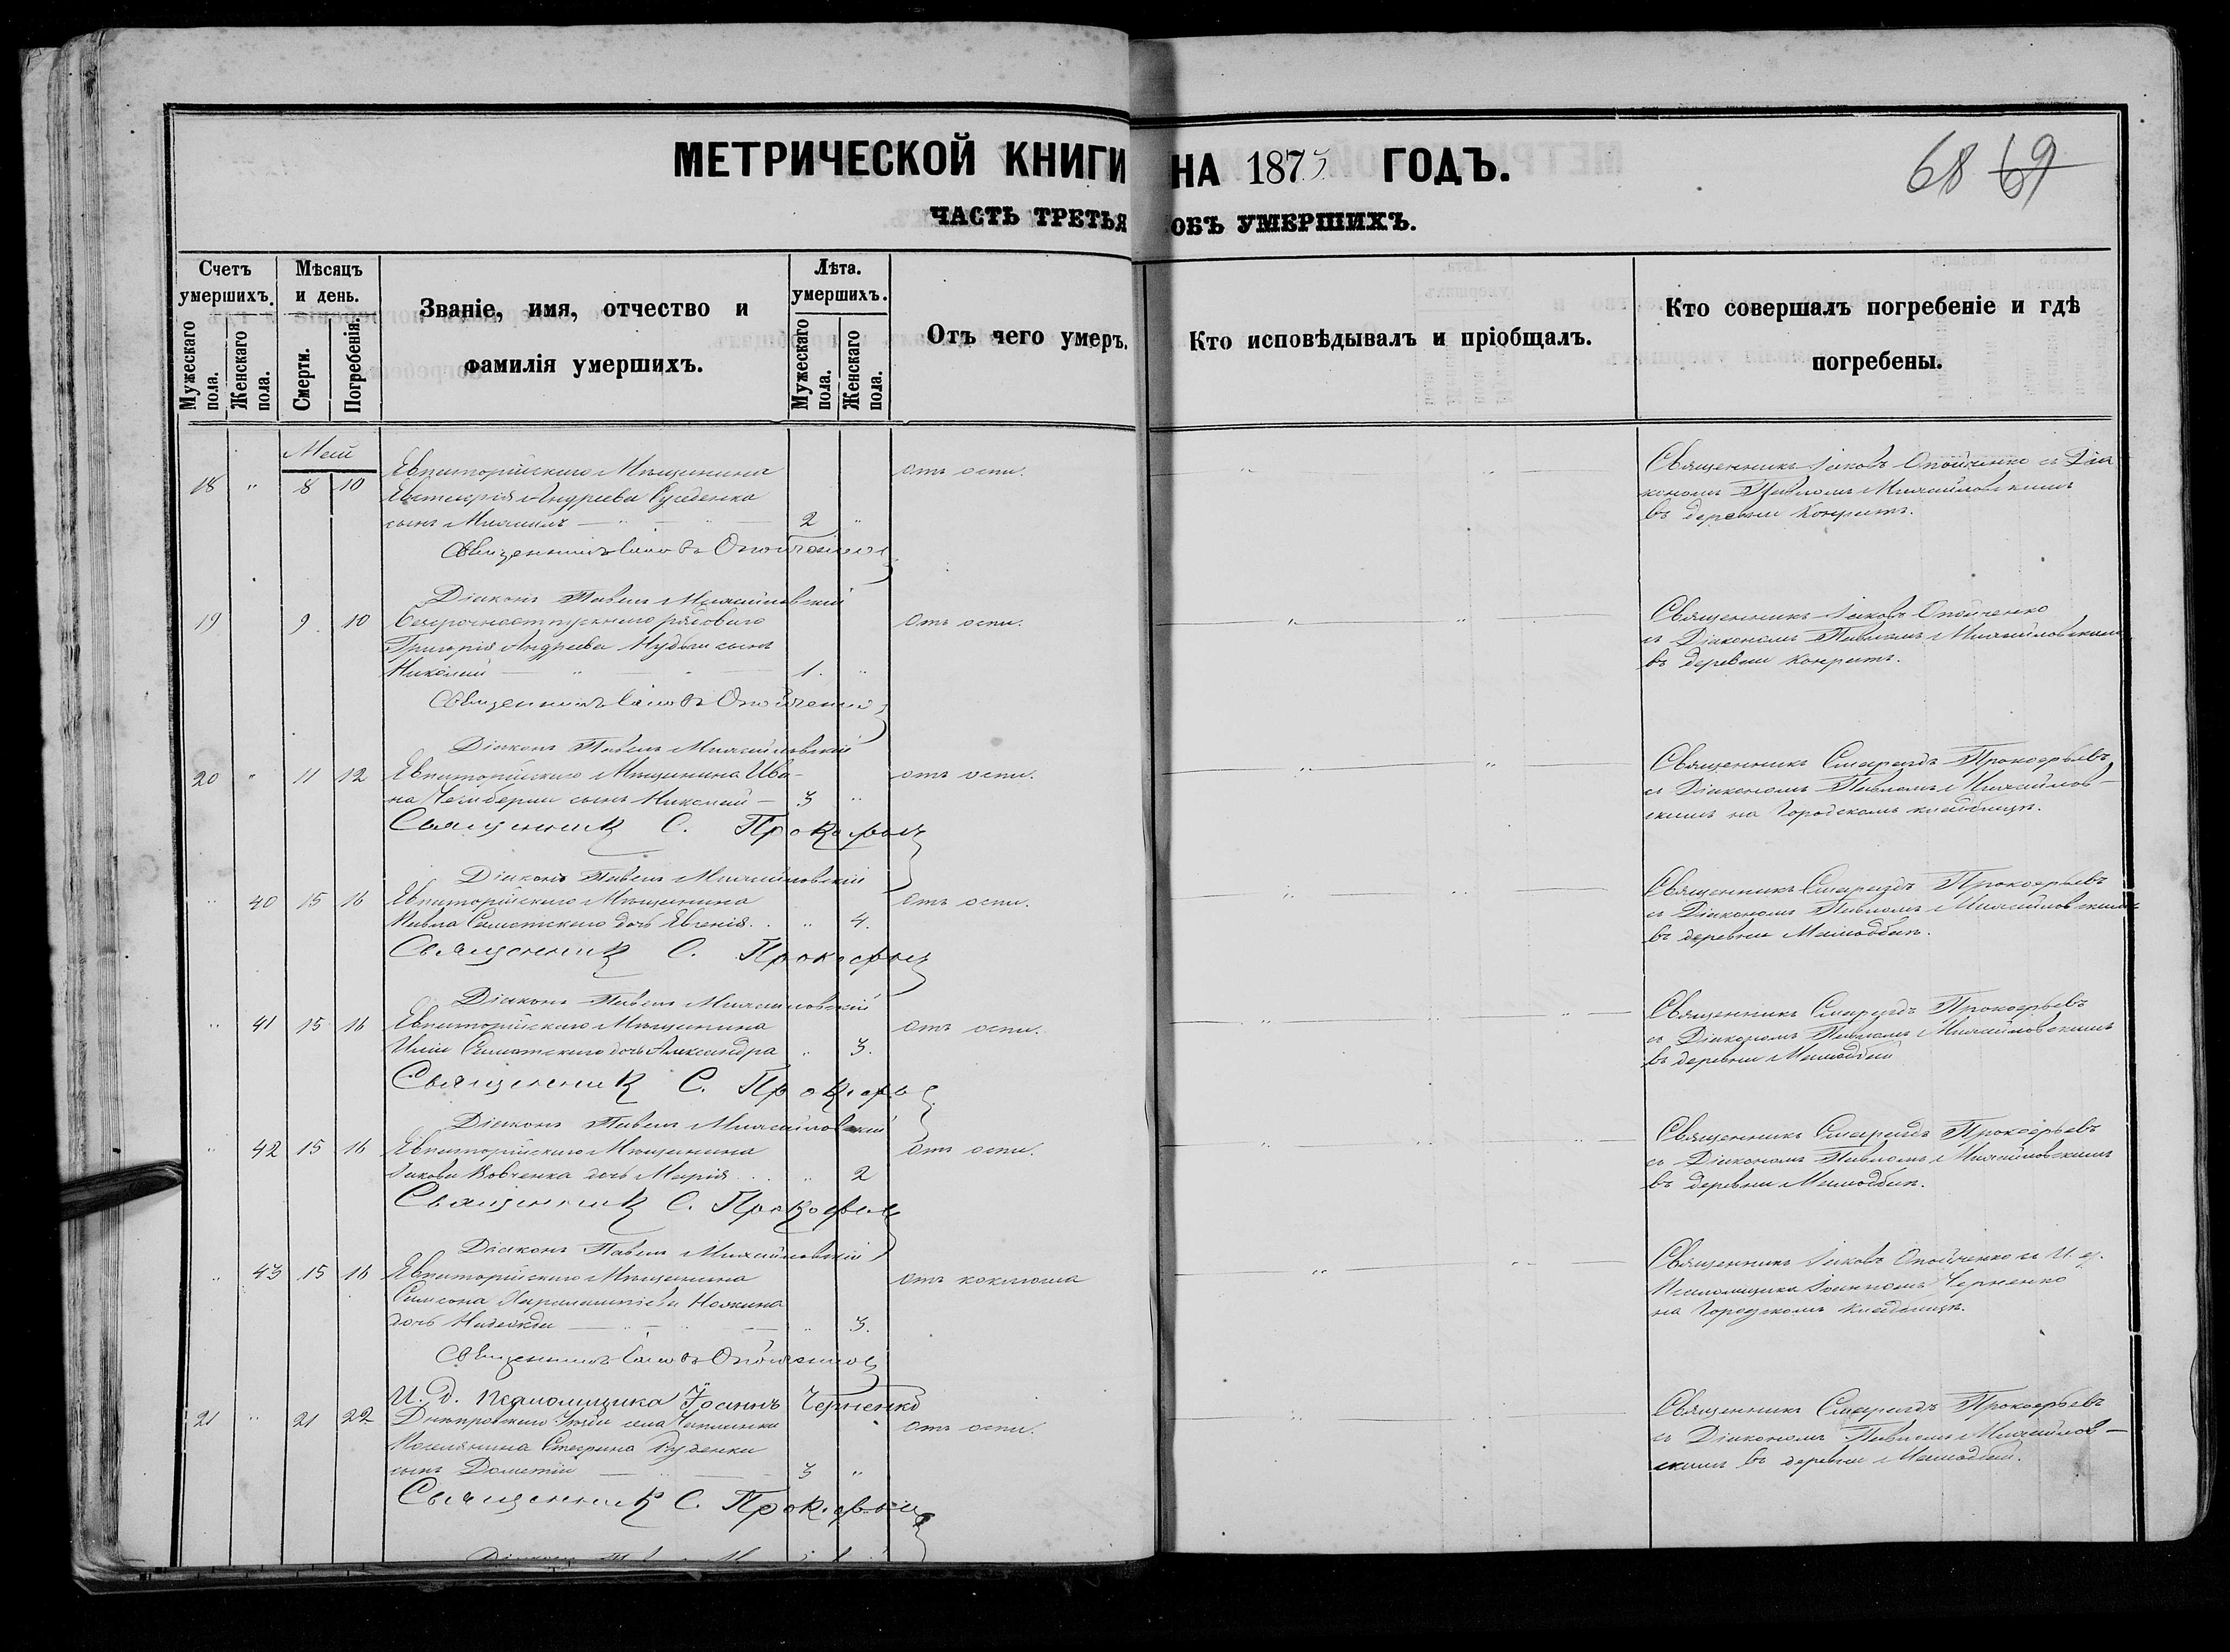 МЕТРИЧЕСКОЙ КНИГИ НА 1875 ГОДЪ.
68 69
ЧАСТЬ ТРЕТЬЯ ОБЪ УМЕРШИХЪ.
Счетъ умершихъ.
Мужескаго пола.
Женскаго пола.
Мѣсяцъ и день.
Смерти.
Погребенія.
Званіе, имя, отчество и
фамилія умершихъ.
Лѣта. умершихъ.
Мужескаго пола.
Женскаго пола.
Отъ чего умеръ.
Кто исповѣдывалъ и пріобщалъ.
Кто совершалъ погребеніе и гдѣ
погребены.
Май
18 " 8 10 Евпаторійскаго Мѣщанина
Андреева
сынъ Михаилъ 2 "
отъ оспы.
Священникъ Іаковъ Опойченко съ Діа
кономъ Павломъ Михайловскимъ
въ деревни Конратъ.
Священникъ Іаковъ Опойченко
Діаконъ Павелъ Михайловскій
19 9 10 Безсрочноотпускнаго рядоваго
Григорія Андреева сынъ
Николай 1. "
отъ оспы.
Священникъ Іаковъ Опойченко
съ Діакономъ Павломъ Михайловскимъ
въ деревни Конратъ.
Священникъ Іаковъ Опойченко
Діаконъ Павелъ Михайловскій
20 " 11 12 Евпаторійскаго Мѣщанина Ива-
на сынъ Николай 3 "
отъ оспы.
Священникъ Смарагдъ Прокофьевъ
съ Діакономъ Павломъ Михайлов-
скимъ на Городскомъ кладбищѣ.
Священникъ С. Прокофьевъ
Діаконъ Павелъ Михайловскій
" 40 15 16 Евпаторійскаго Мѣщанина
Павла дочь Евгенія. " 4.
отъ оспы.
Священникъ Смарагдъ Прокофьевъ
съ Діакономъ Павломъ Михайловскимъ
въ деревни
Священникъ С. Прокофьевъ
Діаконъ Павелъ Михайловскій
" 41 15 16 Евпаторійскаго Мѣщанина
Иліи дочь Александра " 3.
отъ оспы.
Священникъ Смарагдъ Прокофьевъ
съ Діакономъ Павломъ Михайловскимъ
въ деревни
Священникъ С. Прокофьевъ
Діаконъ Павелъ Михайловскій
" 42 15 16 Евпаторійскаго Мѣщанина
Іакова Вовченка дочь Марія " 2
отъ оспы.
Священникъ Смарагдъ Прокофьевъ
съ Діакономъ Павломъ Михайловскимъ
въ деревни
Священникъ С. Прокофьевъ
Діаконъ Павелъ Михайловскій
" 43 15 16 Евпаторійскаго Мѣщанина
Самсона
дочь Надежда " 3.
отъ коклюша
Священникъ Іаковъ Опойченко и И. д.
Псаломщика Іоанномъ Черненко
на Городскомъ кладбищѣ.
Священникъ Іаковъ Опойченко
И. д. псаломщика Іоаннъ Черненко
21 " 21 22 Днѣпровскаго Уѣзда села Чаплинки
Поселянина Руденки
сынъ Дометій 3 "
отъ оспы.
Священникъ Смарагдъ Прокофьевъ
съ Діакономъ Павломъ Михайлов-
скимъ въ деревни
Священникъ С. Прокофьевъ